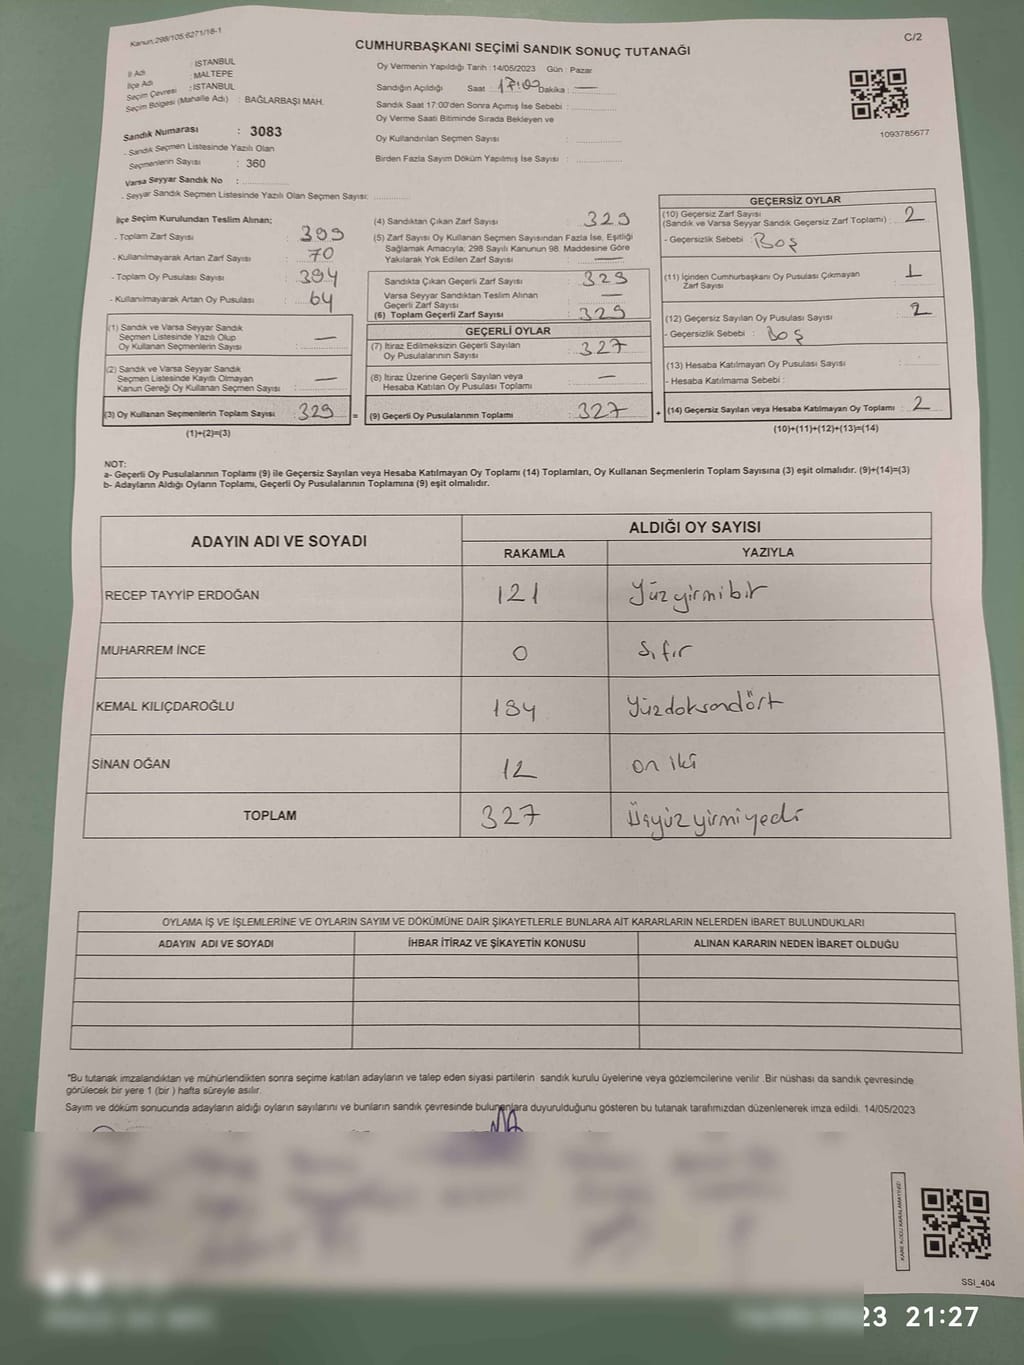 Kanun:298/105:6271/18-1
C/2
CUMHURBAŞKANI SEÇİMİ SANDIK SONUÇ TUTANAĞI
İl Adı : İSTANBUL
İlçe Adı : MALTEPE
Seçim Çevresi : İSTANBUL
Seçim Bölgesi (Mahalle Adı) : BAĞLARBAŞI MAH.
Sandık Numarası : 3083
- Sandık Seçmen Listesinde Yazılı Olan
Seçmenlerin Sayısı : 360
Varsa Seyyar Sandık No :
- Seyyar Sandık Seçmen Listesinde Yazılı Olan Seçmen Sayısı:
Oy Vermenin Yapıldığı Tarih :14/05/2023 Gün : Pazar
Sandığın Açıldığı Saat : 17:00 Dakika : —
Sandık Saat 17:00'den Sonra Açımış İse Sebebi :
Oy Verme Saati Bitiminde Sırada Bekleyen ve
Oy Kullandırılan Seçmen Sayısı :
Birden Fazla Sayım Döküm Yapılmış İse Sayısı :
1093785677
İlçe Seçim Kurulundan Teslim Alınan;
- Toplam Zarf Sayısı : 399
- Kullanılmayarak Artan Zarf Sayısı : 70
- Toplam Oy Pusulası Sayısı : 394
- Kullanılmayarak Artan Oy Pusulası : 64
(1) Sandık ve Varsa Seyyar Sandık
Seçmen Listesinde Yazılı Olup
Oy Kullanan Seçmenlerin Sayısı : —
(2) Sandık ve Varsa Seyyar Sandık
Seçmen Listesinde Kayıtlı Olmayan
Kanun Gereği Oy Kullanan Seçmen Sayısı : —
(3) Oy Kullanan Seçmenlerin Toplam Sayısı : 329 =
(1)+(2)=(3)
(4) Sandıktan Çıkan Zarf Sayısı : 329
(5) Zarf Sayısı Oy Kullanan Seçmen Sayısından Fazla İse, Eşitliği
Sağlamak Amacıyla; 298 Sayılı Kanunun 98. Maddesine Göre
Yakılarak Yok Edilen Zarf Sayısı : —
Sandıkta Çıkan Geçerli Zarf Sayısı : 329
Varsa Seyyar Sandıktan Teslim Alınan
Geçerli Zarf Sayısı : —
(6) Toplam Geçerli Zarf Sayısı : 329
GEÇERLİ OYLAR
(7) İtiraz Edilmeksizin Geçerli Sayılan
Oy Pusulalarının Sayısı : 327
(8) İtiraz Üzerine Geçerli Sayılan veya
Hesaba Katılan Oy Pusulası Toplamı : —
(9) Geçerli Oy Pusulalarının Toplamı : 327 +
GEÇERSİZ OYLAR
(10) Geçersiz Zarf Sayısı
(Sandık ve Varsa Seyyar Sandık Geçersiz Zarf Toplamı) : 2
- Geçersizlik Sebebi : Boş
(11) İçinden Cumhurbaşkanı Oy Pusulası Çıkmayan
Zarf Sayısı : 1
(12) Geçersiz Sayılan Oy Pusulası Sayısı : 2
- Geçersizlik Sebebi : Boş
(13) Hesaba Katılmayan Oy Pusulası Sayısı :
- Hesaba Katılmama Sebebi :
(14) Geçersiz Sayılan veya Hesaba Katılmayan Oy Toplamı : 2
(10)+(11)+(12)+(13)=(14)
NOT:
a- Geçerli Oy Pusulalarının Toplamı (9) ile Geçersiz Sayılan veya Hesaba Katılmayan Oy Toplamı (14) Toplamları, Oy Kullanan Seçmenlerin Toplam Sayısına (3) eşit olmalıdır. (9)+(14)=(3)
b- Adayların Aldığı Oyların Toplamı, Geçerli Oy Pusulalarının Toplamına (9) eşit olmalıdır.
ADAYIN ADI VE SOYADI
ALDIĞI OY SAYISI
RAKAMLA YAZIYLA
RECEP TAYYİP ERDOĞAN 121 Yüzyirmibir
MUHARREM İNCE 0 Sıfır
KEMAL KILIÇDAROĞLU 194 Yüzdoksandört
SİNAN OĞAN 12 on iki
TOPLAM 327 Üçyüzyirmiyedi
OYLAMA İŞ VE İŞLEMLERİNE VE OYLARIN SAYIM VE DÖKÜMÜNE DAİR ŞİKAYETLERLE BUNLARA AİT KARARLARIN NELERDEN İBARET BULUNDUKLARI
ADAYIN ADI VE SOYADI İHBAR İTİRAZ VE ŞİKAYETİN KONUSU ALINAN KARARIN NEDEN İBARET OLDUĞU
"Bu tutanak imzalandıktan ve mühürlendikten sonra seçime katılan adayların ve talep eden siyasi partilerin sandık kurulu üyelerine veya gözlemcilerine verilir .Bir nüshası da sandık çevresinde
görülecek bir yere 1 (bir ) hafta süreyle asılır.
Sayım ve döküm sonucunda adayların aldığı oyların sayılarını ve bunların sandık çevresinde bulunanlara duyurulduğunu gösteren bu tutanak tarafımızdan düzenlenerek imza edildi. 14/05/2023
KARE KODU KARALAMAYINIZ!
SSI_404
23 21:27